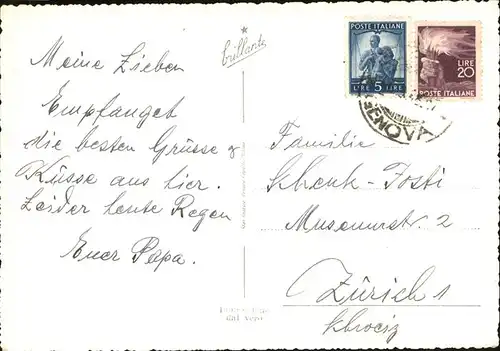 Meine Lieben
Empfanget
die besten Grüsse &
Küsse aus hier.
Leider heute Regen
Euer Papa.
brillante
POSTE ITALIANE
LIRE 5 LIRE
LIRE
20
POSTE ITALIANE
GENOVA
Familie
Schenk-Josti
Museumstr. 2
Zürich 1
Schweiz
dal vero